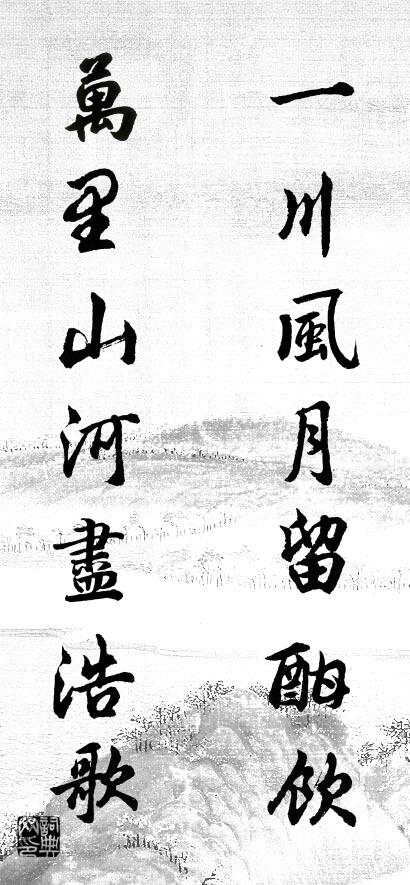 一川風月留酣飲
萬里山河盡浩歌